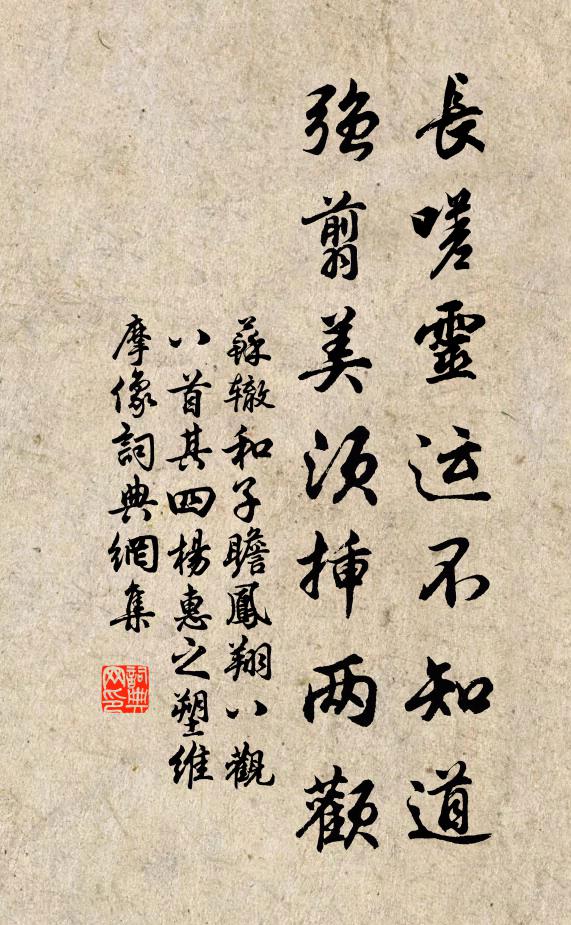 長嗟靈运不知道
強翦美须插两顴
蘇辙和子瞻鳳翔八觀
八首其四楊惠之塑维
摩像詞典網集
詞典网印